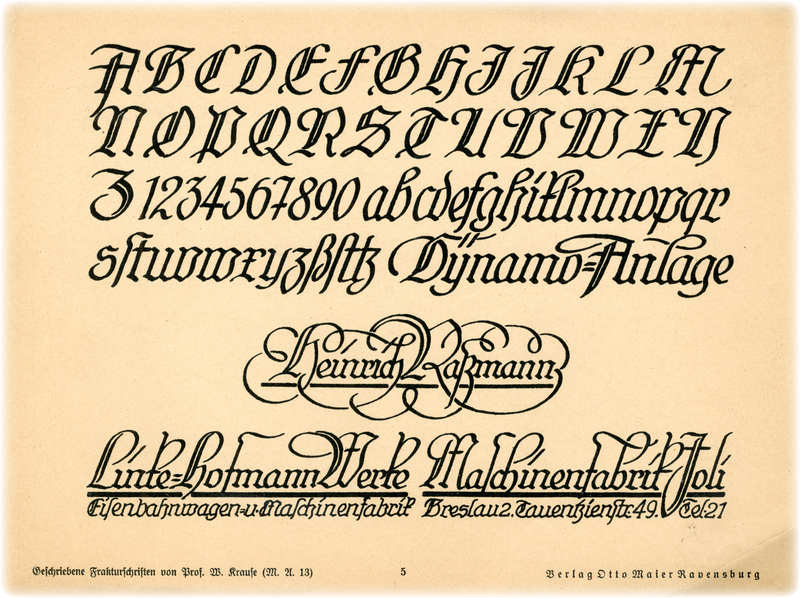 A B C D E F G H I J K L M
N O P Q R S T U V W X Y
Z 1234567890 abcdefghiklmnopqr
sſtuvwxyzßſttz Dynamo=Anlage
Heinrich Raßmann
Linke=Hofmann Werke Maſchinenfabrik Joli
Eiſenbahnwagen=u=Maſchinenfabrik Breslau 2. Tauentzienſtr. 49. Tel: 21
Geſchriebene Frakturſchriften von Prof. W. Krauſe (M. A. 13)
5
Verlag Otto Maier Ravensburg